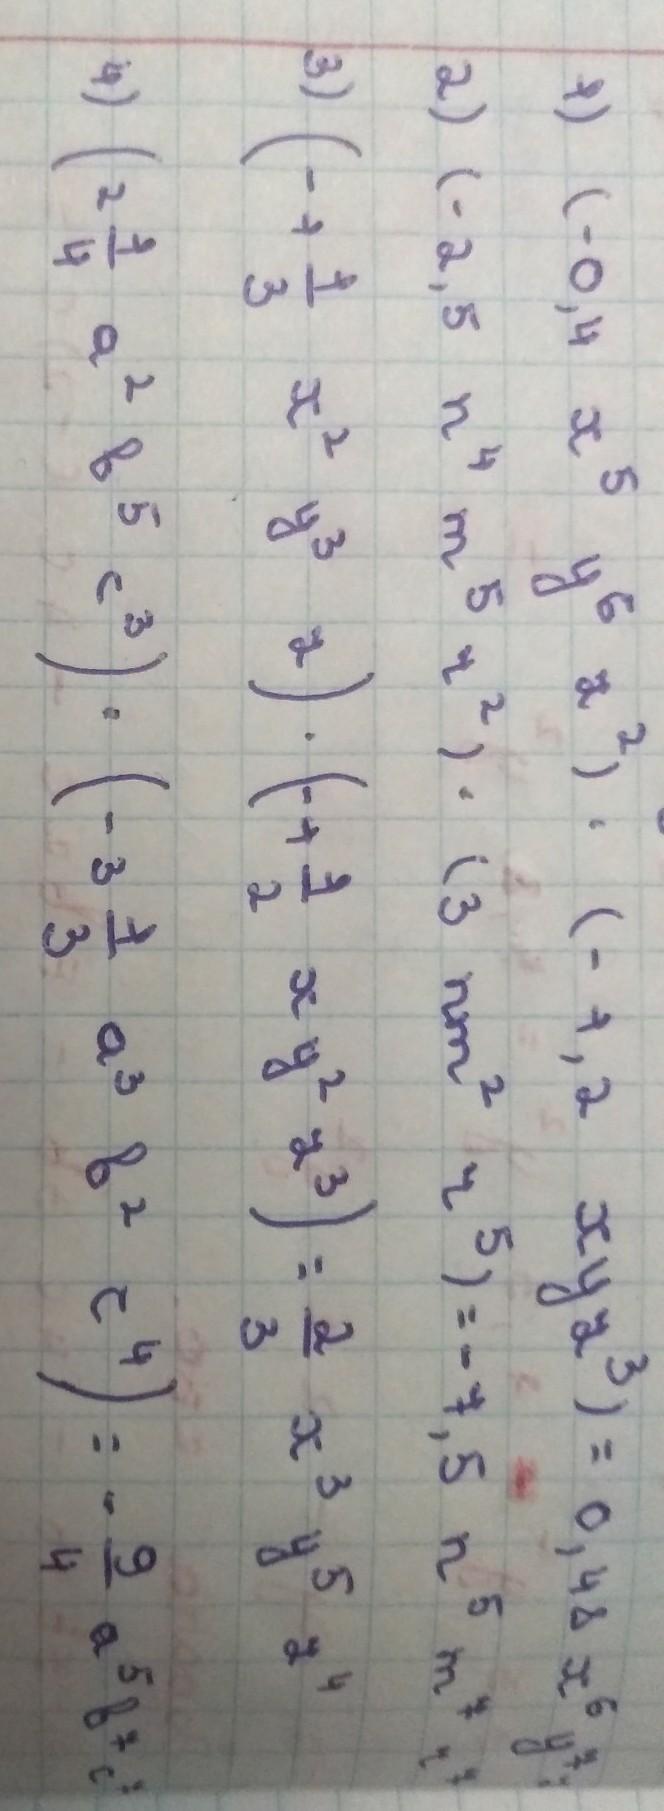 1) (-0,4 x⁵ y⁶ z²) · (-1,2 xyz³) = 0,48 x⁶ y⁷
2) (-2,5 n⁴ m⁵ r²) · (3 nm² r⁵) = -7,5 n⁵ m⁷ r⁷
3) (-1 1/3 x² y³ z) · (-1 1/2 xy² z³) = 2/3 x³ y⁵ z⁴
4) (2 1/4 a² b⁵ c³) · (-3 1/3 a³ b² c⁴) = -9/4 a⁵ b⁷ c⁷